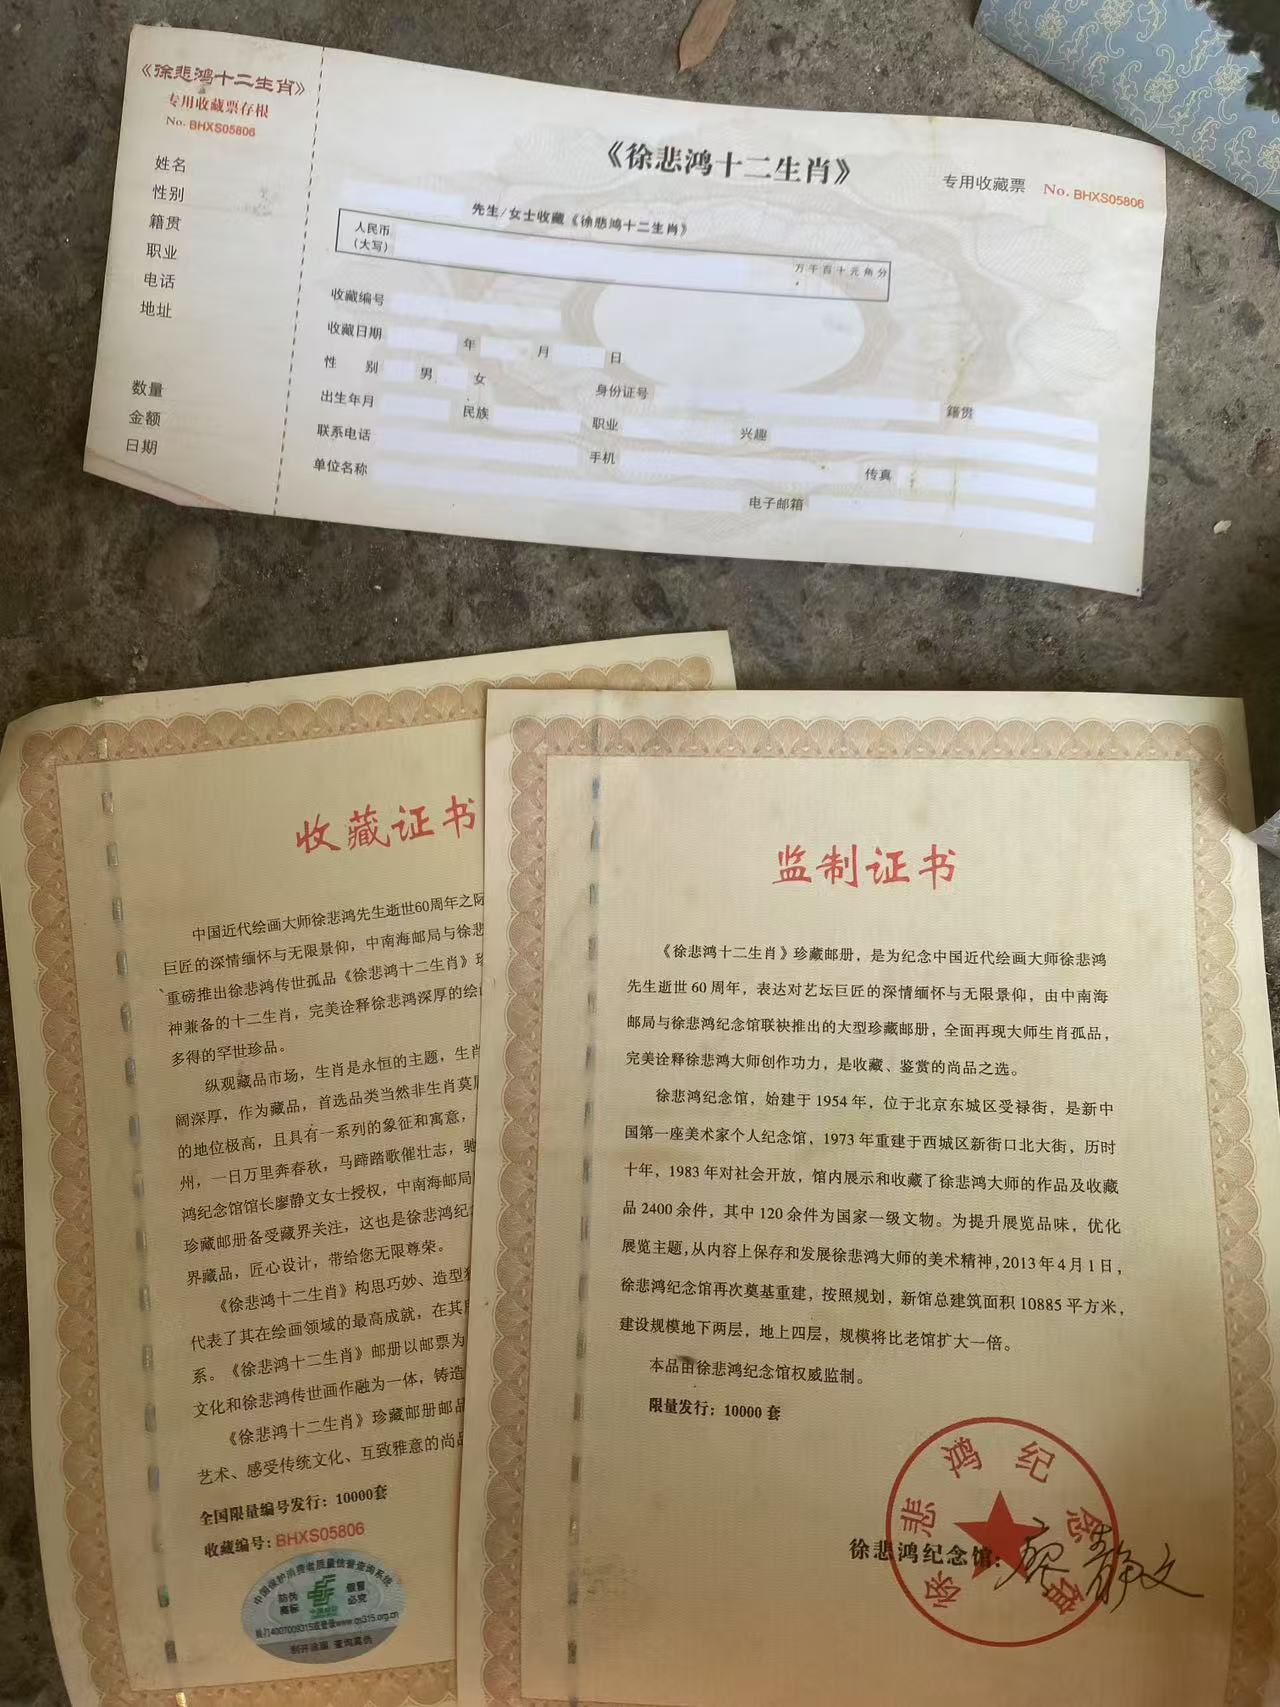 《徐悲鸿十二生肖》
专用收藏票存根
No. BHXS05806
姓名
性别
籍贯
职业
电话
地址
数量
金额
日期
《徐悲鸿十二生肖》
专用收藏票 No. BHXS05806
先生/女士收藏《徐悲鸿十二生肖》
人民币
(大写)
万千百十元角分
收藏编号
收藏日期 年 月 日
性 别 男 女 身份证号 籍贯
出生年月 民族 职业 兴趣
联系电话 手机 传真
单位名称 电子邮箱
收藏证书
中国近代绘画大师徐悲鸿先生逝世60周年之际
巨匠的深情缅怀与无限景仰，中南海邮局与徐悲
重磅推出徐悲鸿传世孤品《徐悲鸿十二生肖》珍
神兼备的十二生肖，完美诠释徐悲鸿深厚的绘
多得的罕世珍品。
纵观藏品市场，生肖是永恒的主题，生肖
阔深厚，作为藏品，首选品类当然非生肖莫
的地位极高，且具有一系列的象征和寓意，
州，一日万里奔春秋，马蹄踏歌催壮志，驰
鸿纪念馆馆长廖静文女士授权，中南海邮局
珍藏邮册备受藏界关注，这也是徐悲鸿纪
界藏品，匠心设计，带给您无限尊荣。
《徐悲鸿十二生肖》构思巧妙、造型
代表了其在绘画领域的最高成就，在其
系。《徐悲鸿十二生肖》邮册以邮票为
文化和徐悲鸿传世画作融为一体，铸造
《徐悲鸿十二生肖》珍藏邮册邮品
艺术、感受传统文化、互致雅意的尚品
全国限量编号发行：10000套
收藏编号：BHXS05806
中国保护消费者质量信誉查询系统
防伪
商标
中国邮政
假冒
必究
拨打4007009315或登录www.qs315.org.cn
刮开涂层 查询真伪
监制证书
《徐悲鸿十二生肖》珍藏邮册，是为纪念中国近代绘画大师徐悲鸿
先生逝世60周年，表达对艺坛巨匠的深情缅怀与无限景仰，由中南海
邮局与徐悲鸿纪念馆联袂推出的大型珍藏邮册，全面再现大师生肖孤品，
完美诠释徐悲鸿大师创作功力，是收藏、鉴赏的尚品之选。
徐悲鸿纪念馆，始建于1954年，位于北京东城区受禄街，是新中
国第一座美术家个人纪念馆，1973年重建于西城区新街口北大街，历时
十年，1983年对社会开放，馆内展示和收藏了徐悲鸿大师的作品及收藏
品2400余件，其中120余件为国家一级文物。为提升展览品味，优化
展览主题，从内容上保存和发展徐悲鸿大师的美术精神，2013年4月1日，
徐悲鸿纪念馆再次奠基重建，按照规划，新馆总建筑面积10885平方米，
建设规模地下两层，地上四层，规模将比老馆扩大一倍。
本品由徐悲鸿纪念馆权威监制。
限量发行：10000套
徐悲鸿纪念馆：廖静文
徐悲鸿纪念馆